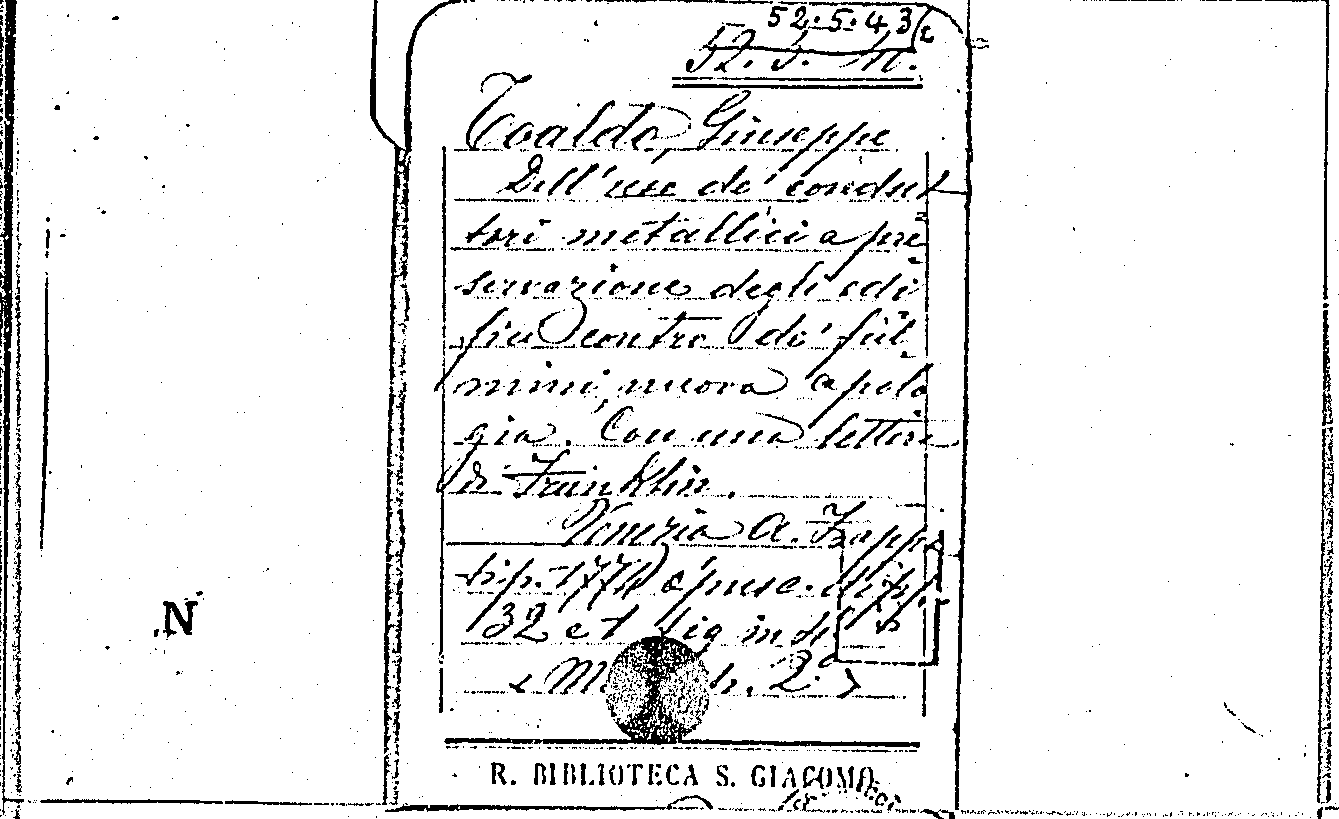 52.5.43
52.5.
Toaldo, Giuseppe
Dell'uso de' condut
tori metallici a pre
servazione degli edi
fici contro de' ful
mini, nuova apolo
gia. Con una lettera
di Franklin.
Venezia A. Zappa
tip. 1774 opusc. di pp.
32 et fig in
2ª
R. BIBLIOTECA S. GIACOMO
N